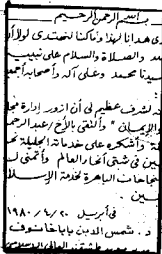 بسم الله الرحمن الرحيم
ى هدانا لهذا وما كنا لنهتدى لولا أن
مد والصلاة والسلام على نبيب
سيدنا محمد وعلى آله وأصحابه أجمع
لشرف عظيم لى أن ازور إدارة مجلة
والإيمان " وألتقى بالأخ / عبد الرحمن
وأشكره على خدماته الجليلة
ين فى شتى أنحاء العالم وأتمنى ل
نجاحات الباهرة لخدمة الإسلا
ين .
فى أبريل ٢٠ / ٤ / ١٩٨٠
د . شمس الدين باباخانوف